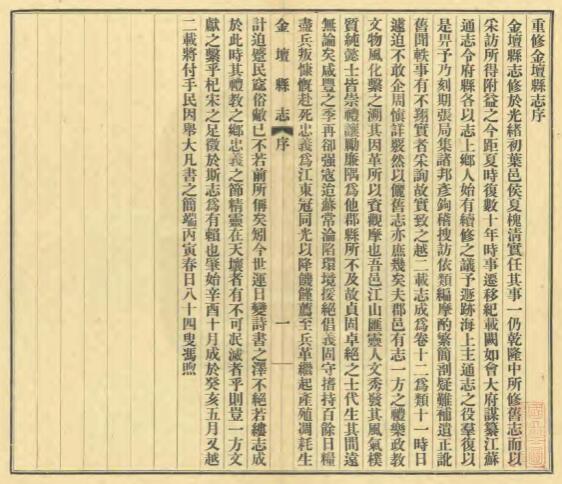 重修金壇縣志序
金壇縣志修於光緒初葉邑侯夏槐清實任其事一仍乾隆中所修舊志而以
采訪所得附益之今距夏時復數十年時事遷移紀載闕如會大府謀纂江蘇
通志令府縣各以志上鄉人始有續修之議予遯跡海上主通志之役羣復以
是畀予乃刻期張局集諸邦彥鉤稽搜訪依類編摩酌繁簡剖疑難補遺正訛
舊聞軼事有不翔實者采詢故實致之越二載志成爲卷十二爲類十一時日
遽迫不敢企周愼詳覈然以儷舊志亦庶幾矣夫郡邑有志一方之禮樂政教
文物風化繫之溯其因革所以資觀摩也吾邑江山匯靈人文秀發其風氣樸
質純懿士皆崇禮讓勵廉隅爲他郡縣所不及故貞固卓絕之士代生其間遠
無論矣咸豐之季再卻強寇迨蘇常淪陷環境援絕倡義固守搘持百餘日糧
盡兵叛慷慨赴死忠義爲江東冠同光以降饑饉薦至兵革繼起產殖凋耗生
計迫蹙民窳俗敝已不若前所稱矣矧今世運日變詩書之澤不絕若縷志成
於此時其禮教之鄉忠義之節精靈在天壤者有不可泯滅者乎則豈一方文
獻之繫乎杞宋之足徵於斯志爲有賴也肇始辛酉十月成於癸亥五月又越
二載將付手民因舉大凡書之簡端丙寅春日八十四叟馮煦
金壇縣志
序
一